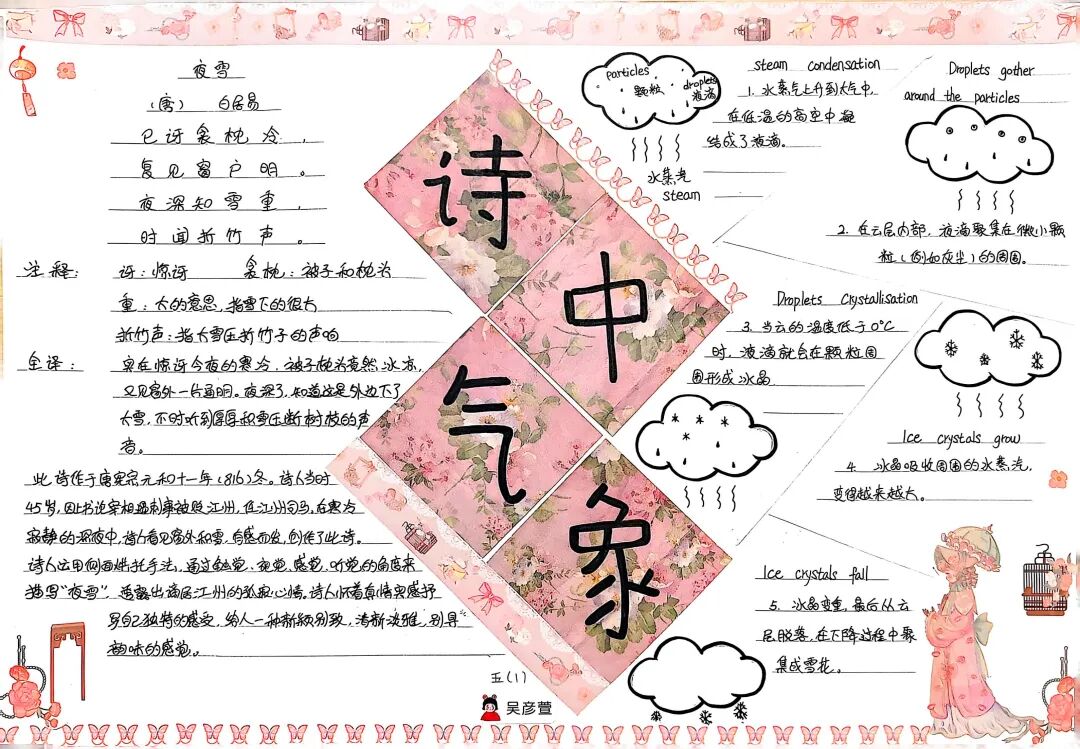 夜雪
(唐) 白居易
已讶衾枕冷，
复见窗户明。
夜深知雪重，
时闻折竹声。
注释：讶：惊讶 衾枕：被子和枕头
重：大的意思，指雪下的很大
折竹声：指大雪压折竹子的声响
全译：实在惊讶今夜的寒冷，被子枕头竟然冰冻，
又见窗外一片通明。夜深了，知道这是外边下了
大雪，不时听到厚厚积雪压断树枝的声
音。
此诗作于唐宪宗元和十一年(816)冬。诗人当时
45岁，因上书论宰相遇刺事被贬江州，任江州司马，在寒冷
寂静的深夜中，诗人看见窗外积雪，有感而发，创作了此诗。
诗人运用侧面烘托手法，通过触觉、视觉、感觉、听觉的角度来
描写“夜雪”，透露出谪居江州的孤寂心情，诗人怀着真情实感抒
写自己独特的感受，给人一种新颖别致，清新淡雅，别具
韵味的感觉。
诗
中
气
象
五(1)
吴彦萱
particles
颗粒
droplets
液滴
水蒸汽
steam
steam condensation
1. 水蒸气上升到大气中，
在低温的高空中凝
结成了液滴。
Droplets gother
around the particles
2. 在云层内部，液滴聚集在微小颗
粒(例如灰尘)的周围。
Droplets Crystallisation
3. 当云的温度低于0°C
时，液滴就会在颗粒周
围形成冰晶。
Ice crystals grow
4 冰晶吸收周围的水蒸汽，
变得越来越大。
Ice crystals fall
5. 冰晶变重，最后从云
层脱落，在下降过程中聚
集成雪花。